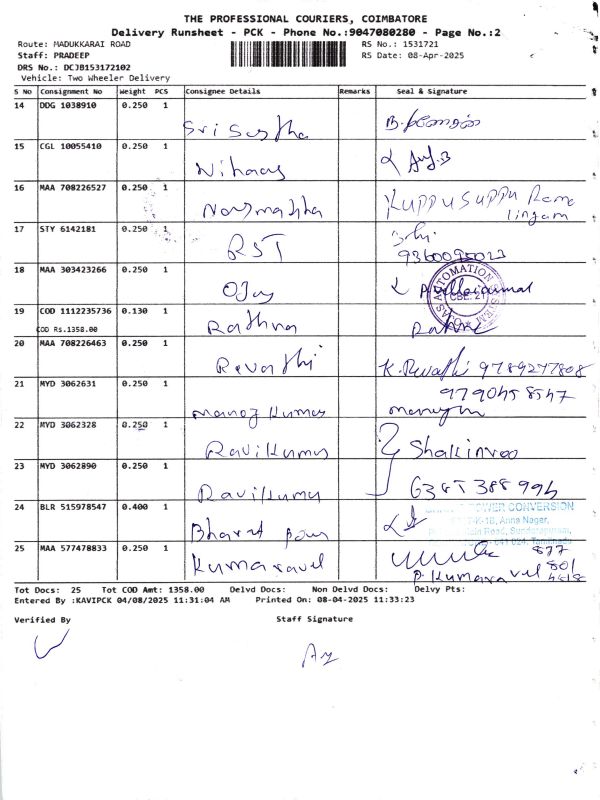 THE PROFESSIONAL COURIERS, COIMBATORE
Delivery Runsheet - PCK - Phone No.:9047080280 - Page No.:2
Route: MADUKKARAI ROAD RS No.: 1531721
Staff: PRADEEP RS Date: 08-Apr-2025
DRS No.: DCJB153172102
Vehicle: Two Wheeler Delivery
S No Consignment No Weight PCS Consignee Details Remarks Seal & Signature
14 DDG 1038910 0.250 1
Sri Sastha
15 CGL 10055410 0.250 1
Nihaas
16 MAA 708226527 0.250 1 Kuppusuppu Rama
lingam
17 STY 6142181 0.250 1
RST 9360095023
18 MAA 303423266 0.250 1
Ojas
AUTOMATION
CBE. 21
19 COD 1112235736 0.130 1
COD Rs.1358.00 Rathna
20 MAA 708226463 0.250 1
Revathi K. Revathi 9789277808
21 MYD 3062631 0.250 1
Manoj Kumar
22 MYD 3062328 0.250 1
Ravikumar
23 MYD 3062890 0.250 1
Ravikumar
24 BLR 515978547 0.400 1
POWER CONVERSION
Anna Nagar,
Bharat Power
25 MAA 577478833 0.250 1 877
Kumaravel P. Kumaravel 801
Tot Docs: 25 Tot COD Amt: 1358.00 Delvd Docs: Non Delvd Docs: Delvy Pts:
Entered By :KAVIPCK 04/08/2025 11:31:04 AM Printed On: 08-04-2025 11:33:23
Verified By Staff Signature